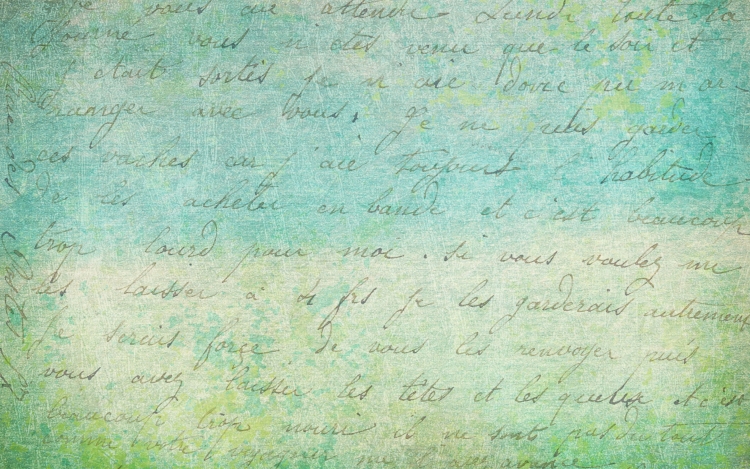 vous ai attendu Lundi toute la
journé vous n'êtes venu que le soir et
j'étais sortis je n'aie donc pu m'ar-
ranger avec vous. Je ne puis garder
ces vaches car j'aie toujours l'habitude
de les acheter en bande et c'est beaucoup
trop lourd pour moi. si vous voulez me
les laisser à frs je les garderais autrement
Je serais forcé de vous les renvoyer puis
vous avez laisser les têtes et les queux et c'est
beaucoup trop nourri il ne sont pas du tout
comme